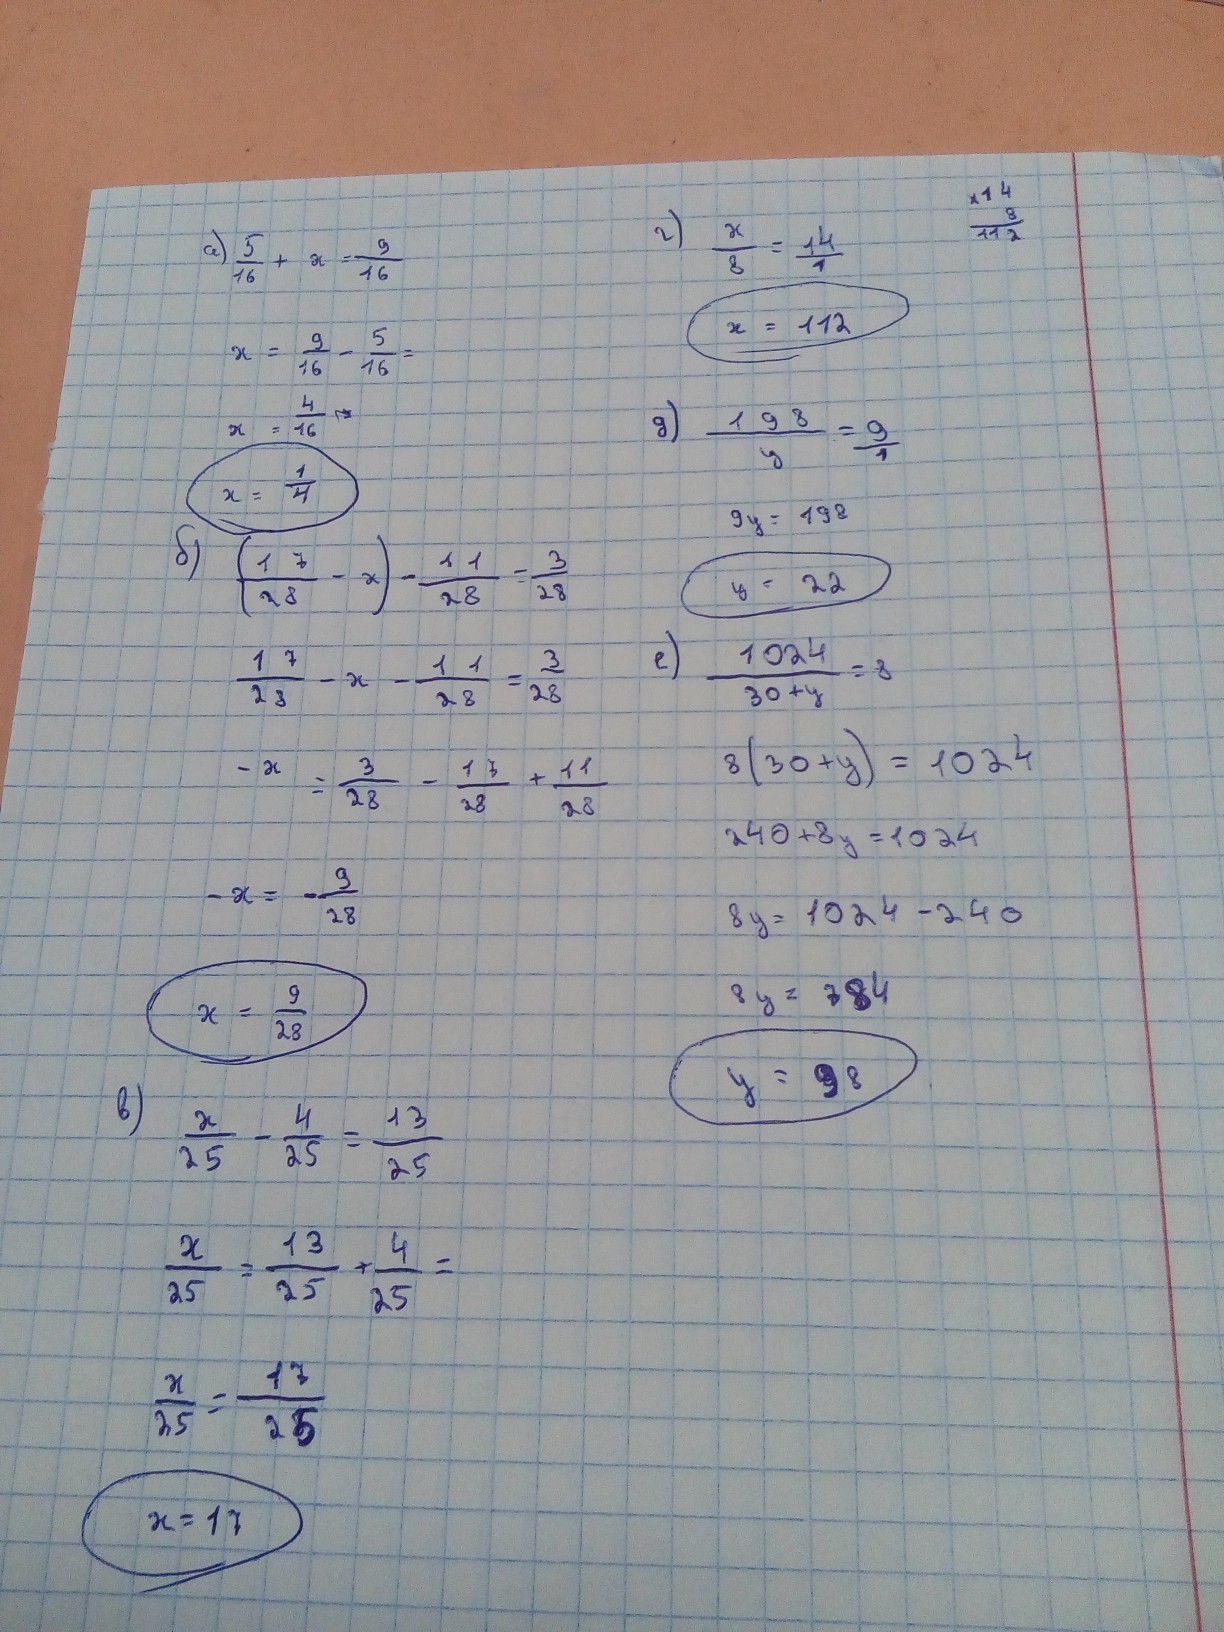 а) 5/16 + x = 9/16
x = 9/16 - 5/16 =
x = 4/16 =
x = 1/4
б) (17/28 - x) - 11/28 = 3/28
17/28 - x - 11/28 = 3/28
-x = 3/28 - 17/28 + 11/28
-x = -9/28
x = 9/28
в) x/25 - 4/25 = 13/25
x/25 = 13/25 + 4/25 =
x/25 = 17/25
x = 17
г) x/8 = 14/1
x = 112
×14
8
112
д) 198/y = 9/1
9y = 198
y = 22
е) 1024/30+y = 8
8(30+y) = 1024
240+8y=1024
8y = 1024 - 240
8y = 784
y = 98